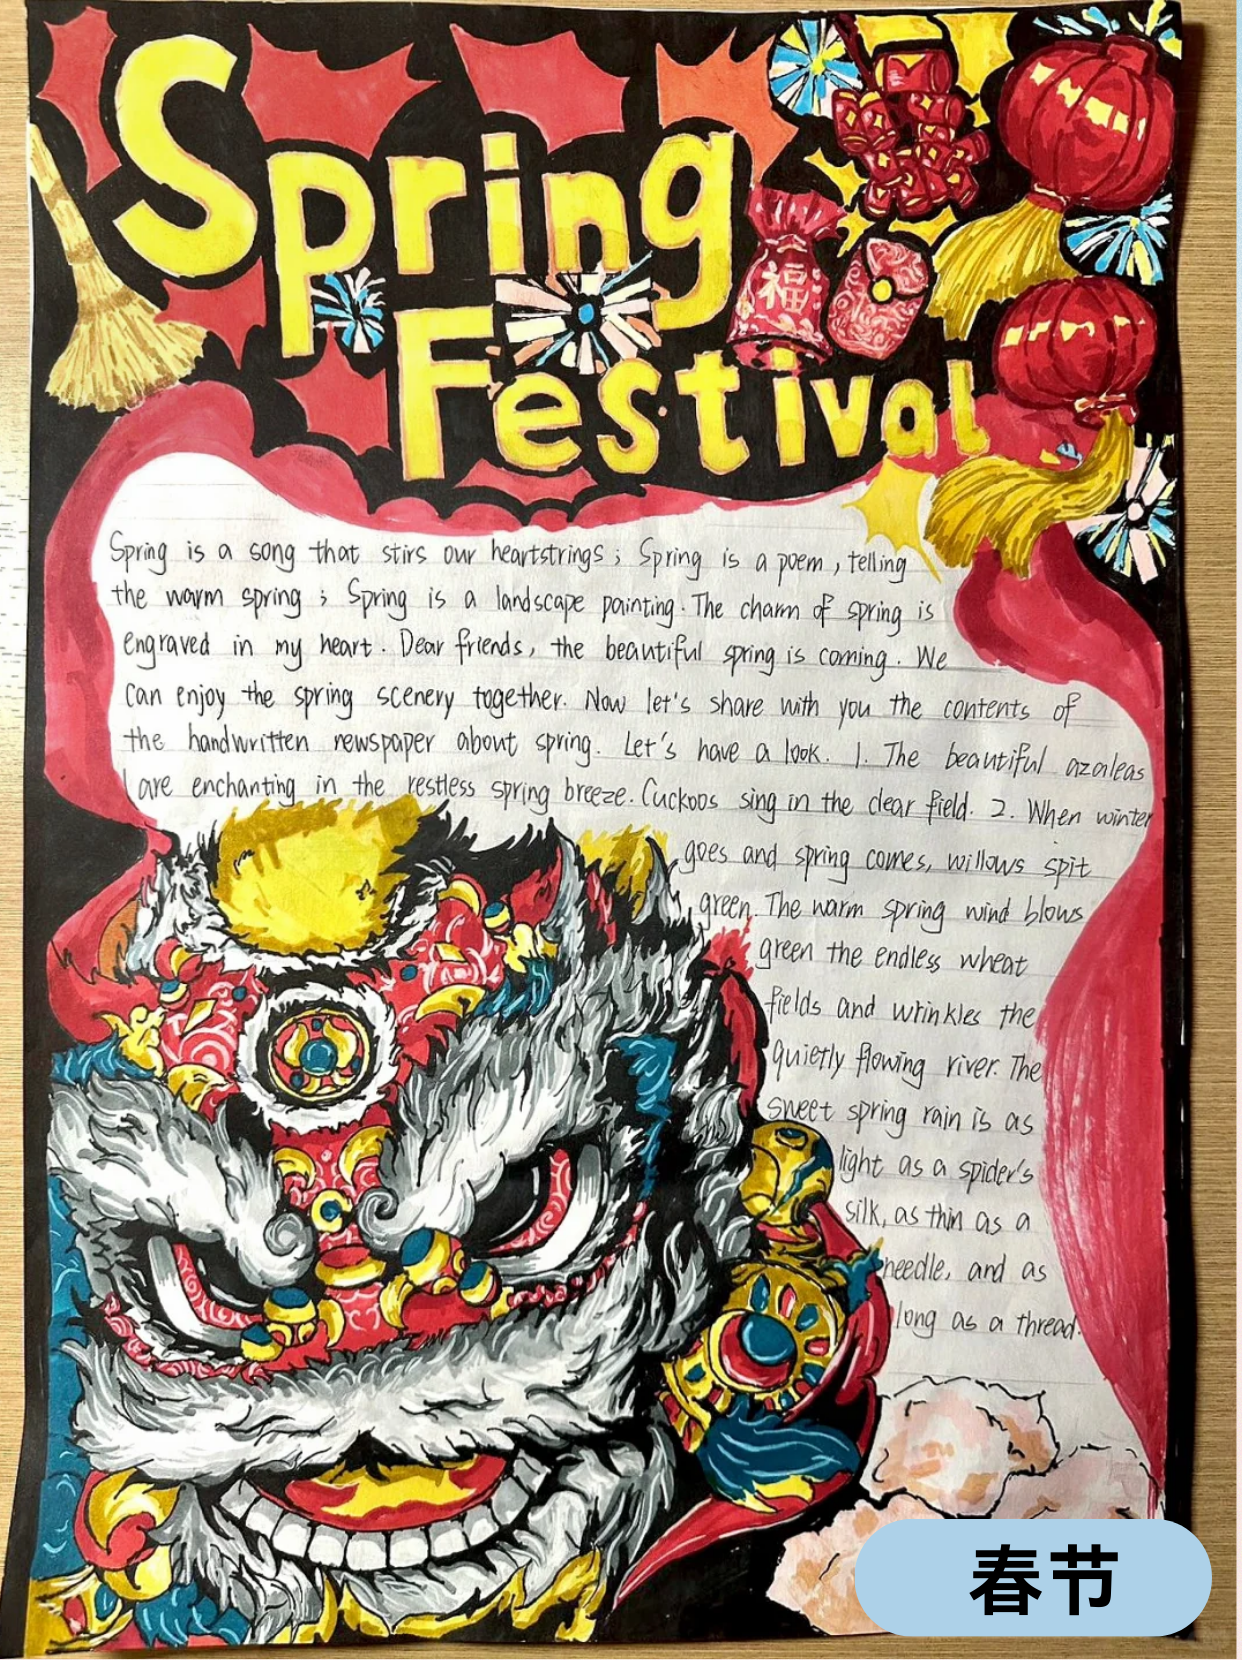 Spring
Festival
福
Spring is a song that stirs our heartstrings ; Spring is a poem , telling
the warm spring ; Spring is a landscape painting. The charm of spring is
engraved in my heart . Dear friends, the beautiful spring is coming . We
can enjoy the spring scenery together. Now let's share with you the contents of
the handwritten newspaper about spring. Let's have a look. 1. The beautiful azaleas
are enchanting in the restless spring breeze. Cuckoos sing in the clear field. 2. When winter
goes and spring comes, willows spit
green. The warm spring wind blows
green the endless wheat
fields and wrinkles the
quietly flowing river. The
sweet spring rain is as
light as a spider's
silk, as thin as a
needle, and as
long as a thread.
春节